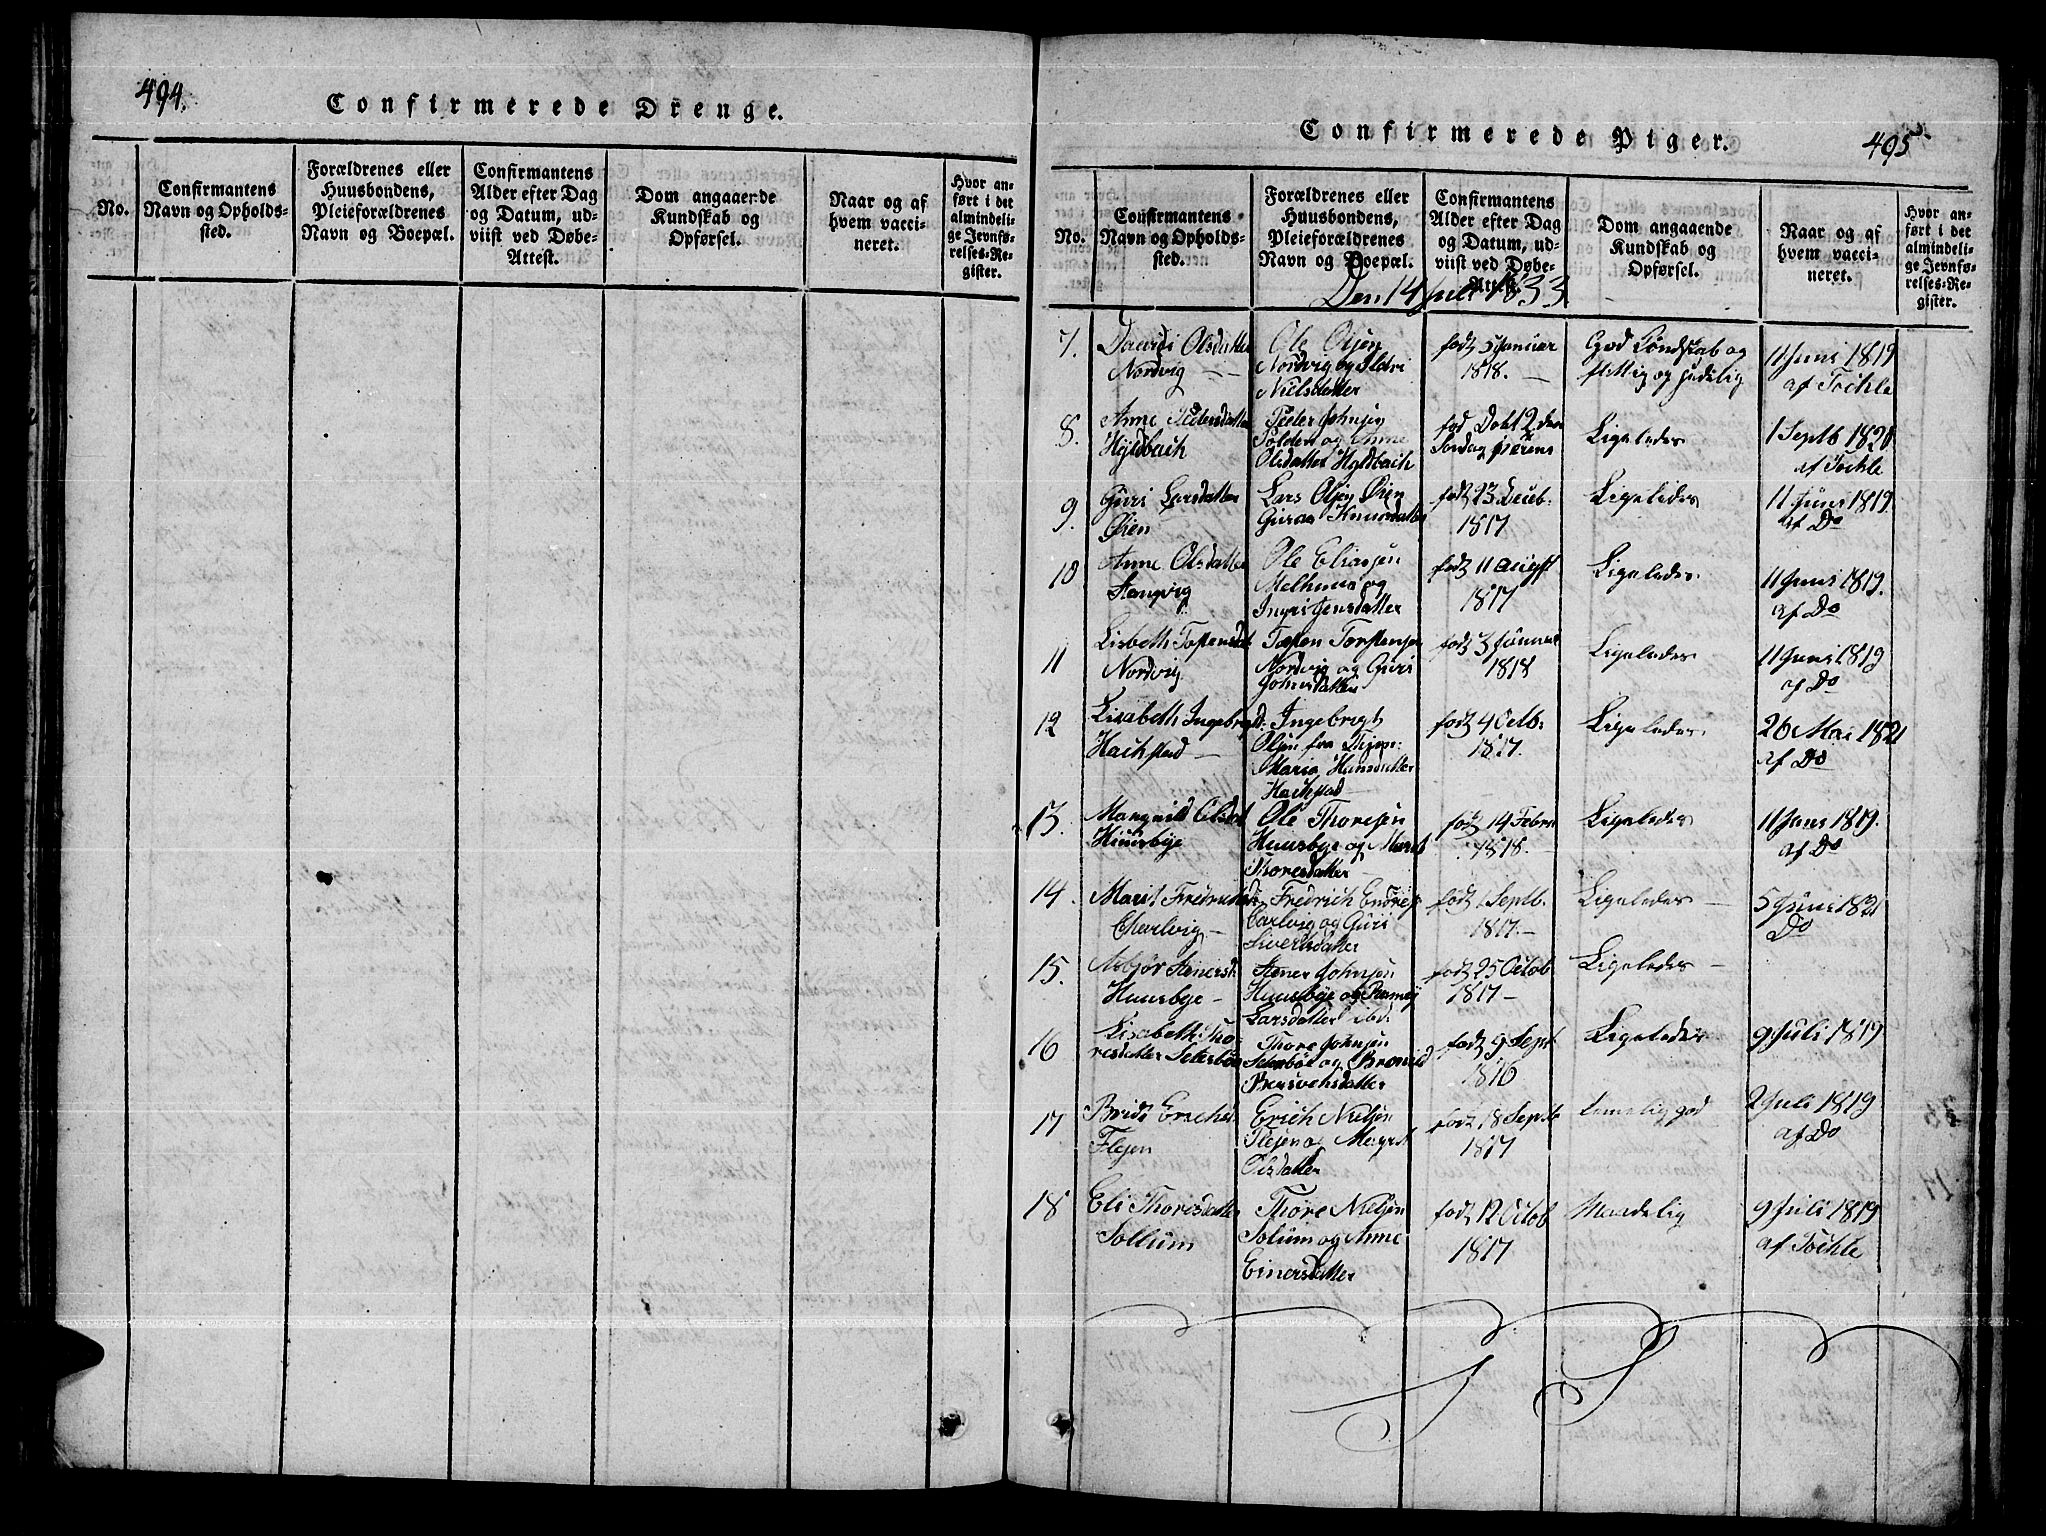 494.
Confirmerede Drenge.
No.
Confirmantens
Navn og Opholds-
sted.
Forældrenes eller
Huusbondens,
Pleieforældrenes
Navn og Boepæl.
Confirmantens
Alder efter Dag
og Datum, ud-
viist ved Døbe-
Attest.
Dom angaaende
Kundskab og
Opførsel.
Naar og af
hvem vacci-
neret.
Hvor an-
ført i det
almindeli-
ge Jevnfø-
relses-Re-
gister.
Confirmerede Piger.
495
No.
Confirmantens
Navn og Opholds-
sted.
Forældrenes eller
Huusbondens,
Pleieforældrenes
Navn og Boepæl.
Confirmantens
Alder efter Dag
og Datum, ud-
viist ved Døbe-
Attest.
Dom angaaende
Kundskab og
Opførsel.
Naar og af
hvem vacci-
neret.
Hvor an-
ført i det
almindeli-
ge Jevnfø-
relses-Re-
gister.
Den 14 Juli 1833
7.
Olsdatter
Nordvig
Ole Olsen
Nordvig og Ildri
Nielsdatter
født 5 Januar
1818.
God Kundskab og
flittig og sædelig
11 Juni 1819
af Töchle
8.
Anne Pedersdatter
Hyldbach
Peder Johnsen
og Anne
Olsdatter Hyldbach
1 Septb 1820
af Töchle
Ligeledes
9.
Guri Larsdatter
Øien
Lars Olsen Øien
Knudsdatter
født 23 Decb.
1817
Ligeledes
11 Juni 1819.
af Do
10
Anne Olsdatter
Stangvig
Ole Eliasen
Melhuus og
Ingri Jensdatter
født 11 August
1817
Ligeledes
11 Juni 1819.
af Do
11
Lisbeth
Nordvig
Torstensen
Nordvig og Guri
Johnsdatter
født 3 Januar
1818
Ligeledes
11 Juni 1819
af Do
12
Lisabeth Ingebrigtsd:
Hachstad
Ingebrigt
Olsen fra
Maria Hansdatter
Hachstad
født 4 Octb.
1817.
Ligeledes
26 Mai 1821
af Do
13.
Olsdat
Huusbye
Ole Thoresen
Huusbye og Marit
Thoresdatter
født 14 Febr
1818.
Ligeledes
11 Juni 1819.
af Do
14.
Marit
Charlvig
Fredrich Endres
Carlvig og Guri
Siversdatter
født 1 Septb.
1817.
Ligeledes
5 Juni 1821
Do
15.
Huusbye
Stener Johnsen
Huusbye og
Larsdatter ibd:
født 25 Octob
1817
Ligeledes
16
Lisabeth Tho-
resdatter Seterbøe
Thore Johnsen
Seterbøe og
født 9 Sept
1816
Ligeledes
9 Juli 1819
17
Brit Erichsd
Flejen
Erich Nielsen
Flejen og Magrit
Olsdatter
født 18 Septb
1817
temelig god
2 Juli 1819
af Do
18
Eli Thoresdatter
Sollium
Thore Nielsen
Solium og Anne
Einersdatter
født 12 Octob
1817
Maadelig
9 Juli 1819
af Töchle